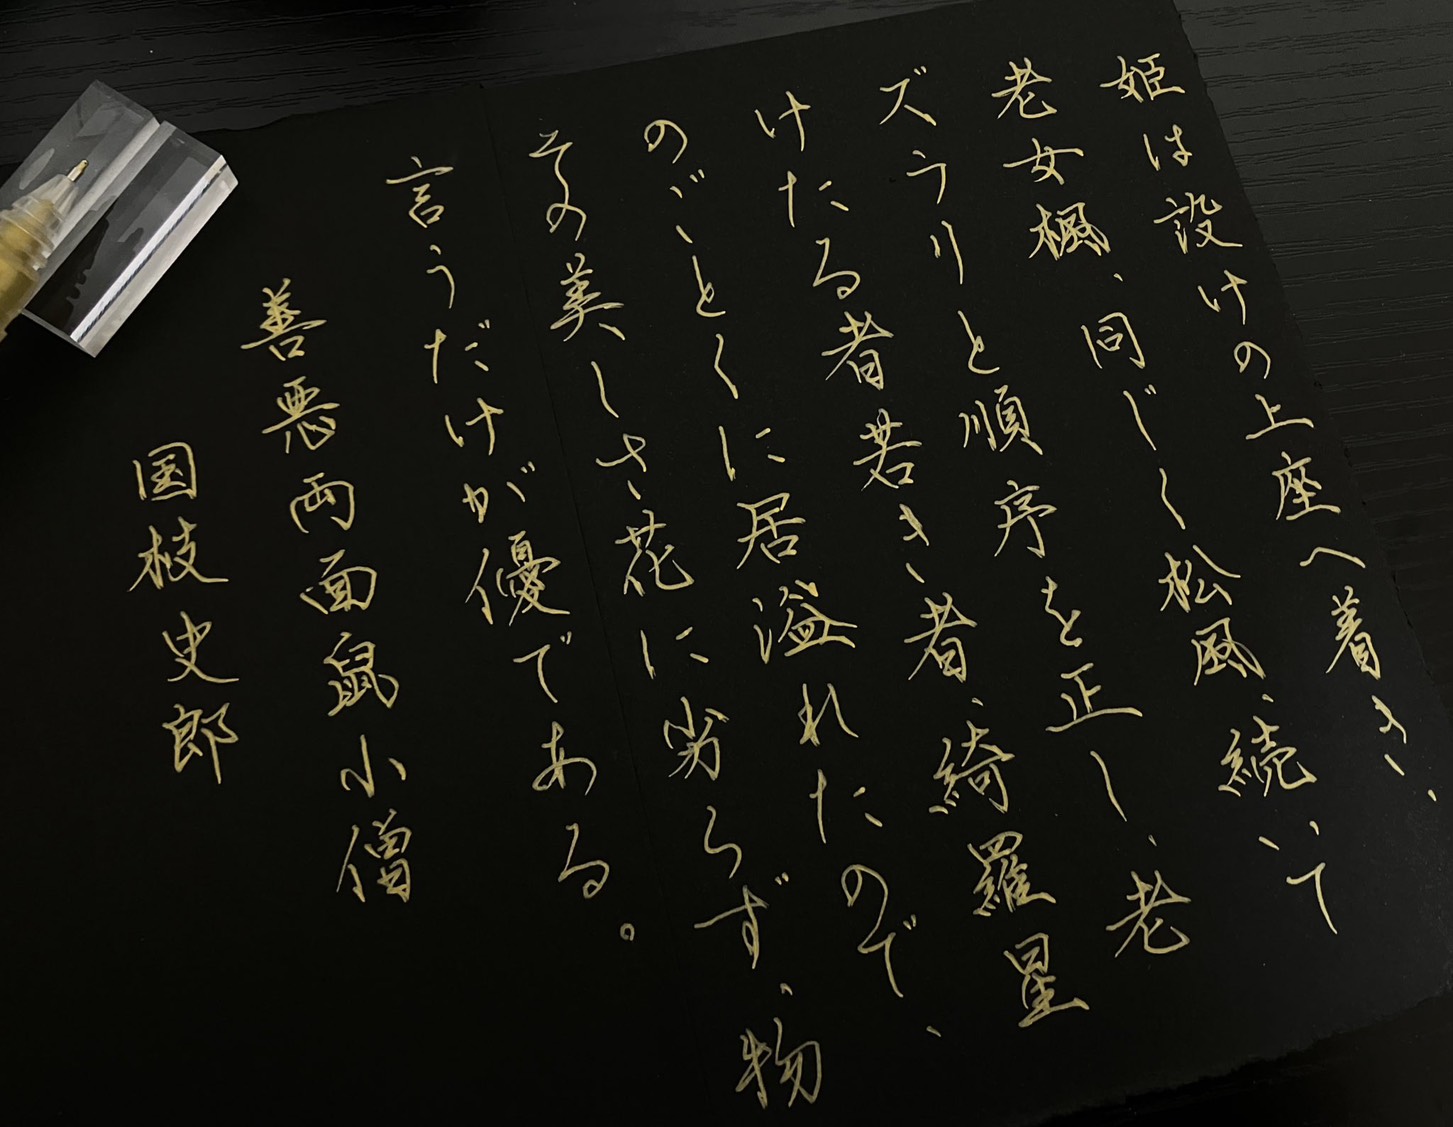 姫は設けの上座へ着き、
老女楓、同じく松風、続いて
ズラリと順序を正し、老
けたる者若き者、綺羅星
のごとくに居溢れたので、
その美しさ花に劣らず、物
言うだけが優である。
善悪両面鼠小僧
国枝史郎